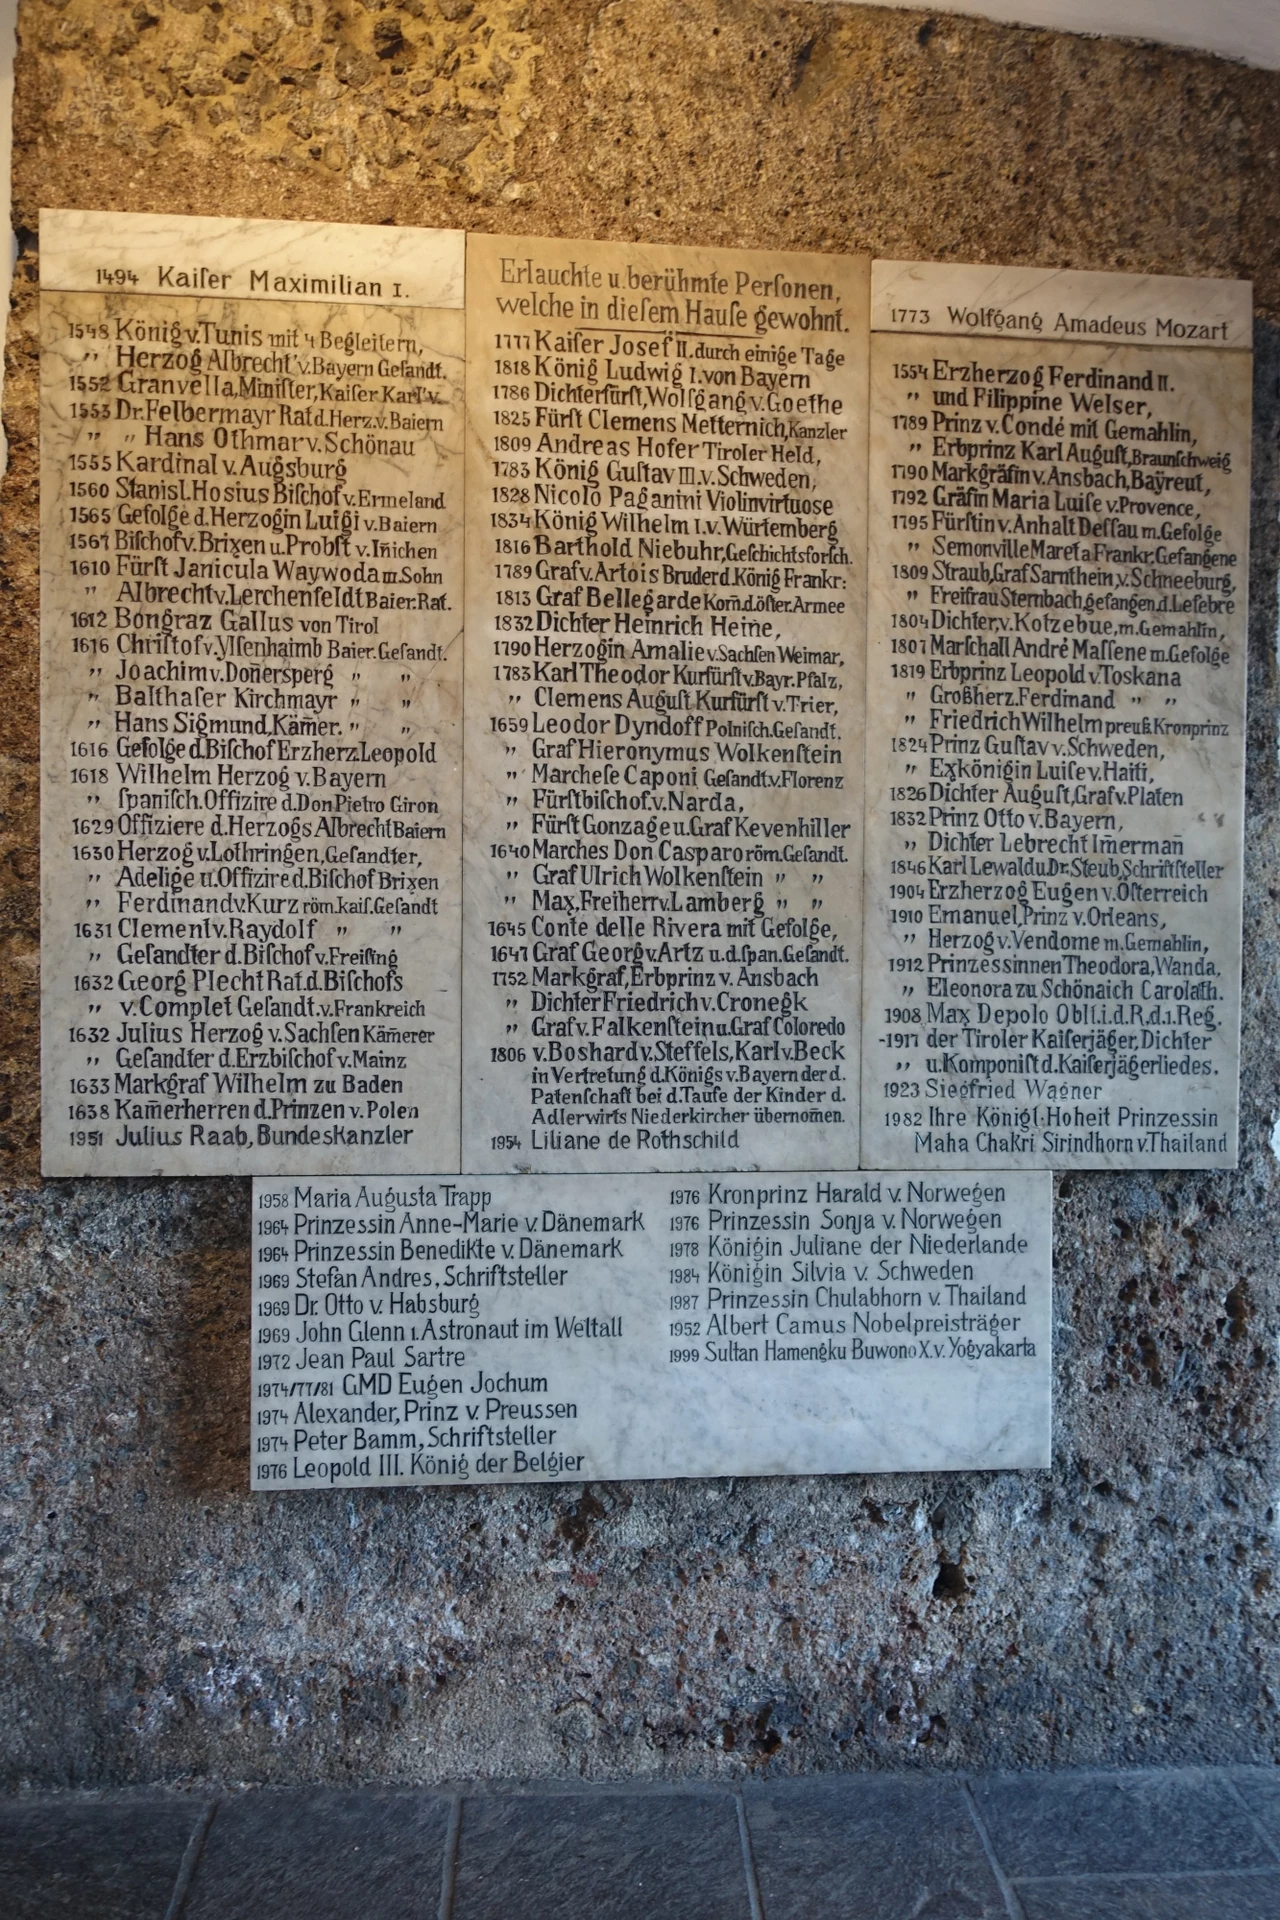 1494 Kaiſer Maximilian I.
1548 König v. Tunis mit 4 Begleitern,
" Herzog Albrecht v. Bayern Geſandt.
1552 Granvella, Miniſter, Kaiſer Karl v.
1553 Dr. Felbermayr Rat d. Herz. v. Baiern
" " Hans Othmar v. Schönau
1555 Kardinal v. Augsburg
1560 Stanisl. Hosius Biſchof v. Ermeland
1565 Gefolge d. Herzogin Luigi v. Baiern
1567 Biſchof v. Brixen u. Probſt v. Iñichen
1610 Fürſt Janicula Waywoda m. Sohn
" Albrecht v. Lerchenfeldt Baier. Rat.
1612 Bongraz Gallus von Tirol
1616 Chriſtof v. Ylſenhaimb Baier. Geſandt.
" Joachim v. Doñersperg " "
" Balthaſer Kirchmayr " "
" Hans Sigmund, Käm̃er. " "
1616 Gefolge d. Biſchof Erzherz. Leopold
1618 Wilhelm Herzog v. Bayern
" ſpaniſch. Offizire d. Don Pietro Giron
1629 Offiziere d. Herzogs Albrecht Baiern
1630 Herzog v. Lothringen, Geſandter,
" Adelige u. Offizire d. Biſchof Brixen
" Ferdinand v. Kurz röm. kaiſ. Geſandt
1631 Clement v. Raydolf " "
" Geſandter d. Biſchof v. Freiſing
1632 Georg Plecht Rat. d. Biſchofs
" v. Complet Geſandt. v. Frankreich
1632 Julius Herzog v. Sachſen Käm̃erer
" Geſandter d. Erzbiſchof v. Mainz
1633 Markgraf Wilhelm zu Baden
1638 Kam̃erherren d. Prinzen v. Polen
1951 Julius Raab, Bundeskanzler
Erlauchte u. berühmte Perſonen,
welche in dieſem Hauſe gewohnt.
1777 Kaiſer Josef II. durch einige Tage
1818 König Ludwig I. von Bayern
1786 Dichterfürſt, Wolfgang v. Goethe
1825 Fürſt Clemens Metternich, Kanzler
1809 Andreas Hofer Tiroler Held,
1783 König Guſtav III. v. Schweden,
1828 Nicolo Paganini Violinvirtuose
1834 König Wilhelm I. v. Würtemberg
1816 Barthold Niebuhr, Geſchichtsforſch.
1789 Graf v. Artois Bruder d. König Frankr:
1813 Graf Bellegarde Kom̃. d. öſter. Armee
1832 Dichter Heinrich Heine,
1790 Herzogin Amalie v. Sachſen Weimar,
1783 Karl Theodor Kurfürſt v. Bayr. Pfalz,
" Clemens Auguſt Kurfürſt v. Trier,
1659 Leodor Dyndoff Polniſch. Geſandt.
" Graf Hieronymus Wolkenſtein
" Marcheſe Caponi Geſandt. v. Florenz
" Fürſtbiſchof. v. Narda,
" Fürſt Gonzage u. Graf Kevenhiller
1640 Marches Don Casparo röm. Geſandt.
" Graf Ulrich Wolkenſtein " "
" Max, Freiherr v. Lamberg " "
1645 Conte delle Rivera mit Gefolge,
1647 Graf Georg v. Artz u. d. ſpan. Geſandt.
1752 Markgraf, Erbprinz v. Ansbach
" Dichter Friedrich v. Cronegk
" Graf v. Falkenſtein u. Graf Coloredo
1806 v. Boshard v. Steffels, Karl v. Beck
in Vertretung d. Königs v. Bayern der d.
Patenſchaft bei d. Taufe der Kinder d.
Adlerwirts Niederkircher übernom̃en.
1954 Liliane de Rothschild
1773 Wolfgang Amadeus Mozart
1554 Erzherzog Ferdinand II.
" und Filippine Welser,
1789 Prinz v. Condé mit Gemahlin,
" Erbprinz Karl Auguſt, Braunſchweig
1790 Markgräfin v. Ansbach, Bayreut,
1792 Gräfin Maria Luiſe v. Provence,
1795 Fürſtin v. Anhalt Deſſau m. Gefolge
" Semonville Maret a. Frankr. Gefangene
1809 Straub, Graf Sarnthein, v. Schneeburg,
" Freifrau Sternbach, gefangen. d. Lefebre
1804 Dichter, v. Kotzebue, m. Gemahlin,
1807 Marſchall André Maſſene m. Gefolge
1819 Erbprinz Leopold v. Toskana
" Großherz. Ferdinand " "
" Friedrich Wilhelm preuß. Kronprinz
1824 Prinz Guſtav v. Schweden,
" Exkönigin Luiſe v. Haiti,
1826 Dichter Auguſt, Graf v. Platen
1832 Prinz Otto v. Bayern,
" Dichter Lebrecht Im̃ermañ
1846 Karl Lewald u. Dr. Steub, Schriftſteller
1904 Erzherzog Eugen v. Öſterreich
1910 Emanuel, Prinz v. Orleans,
" Herzog v. Vendome m. Gemahlin,
1912 Prinzessinnen Theodora, Wanda,
" Eleonora zu Schönaich Carolath.
1908 Max Depolo Oblt. i. d. R. d. 1. Reg.
-1917 der Tiroler Kaiſerjäger, Dichter
" u. Komponiſt d. Kaiſerjägerliedes.
1923 Siegfried Wagner
1982 Ihre Königl. Hoheit Prinzessin
Maha Chakri Sirindhorn v. Thailand
1958 Maria Augusta Trapp
1964 Prinzessin Anne-Marie v. Dänemark
1964 Prinzessin Benedikte v. Dänemark
1969 Stefan Andres, Schriftsteller
1969 Dr. Otto v. Habsburg
1969 John Glenn 1. Astronaut im Weltall
1972 Jean Paul Sartre
1974/77/81 GMD Eugen Jochum
1974 Alexander, Prinz v. Preussen
1974 Peter Bamm, Schriftsteller
1976 Leopold III. König der Belgier
1976 Kronprinz Harald v. Norwegen
1976 Prinzessin Sonja v. Norwegen
1978 Königin Juliane der Niederlande
1984 Königin Silvia v. Schweden
1987 Prinzessin Chulabhorn v. Thailand
1952 Albert Camus Nobelpreisträger
1999 Sultan Hamengku Buwono X. v. Yogyakarta